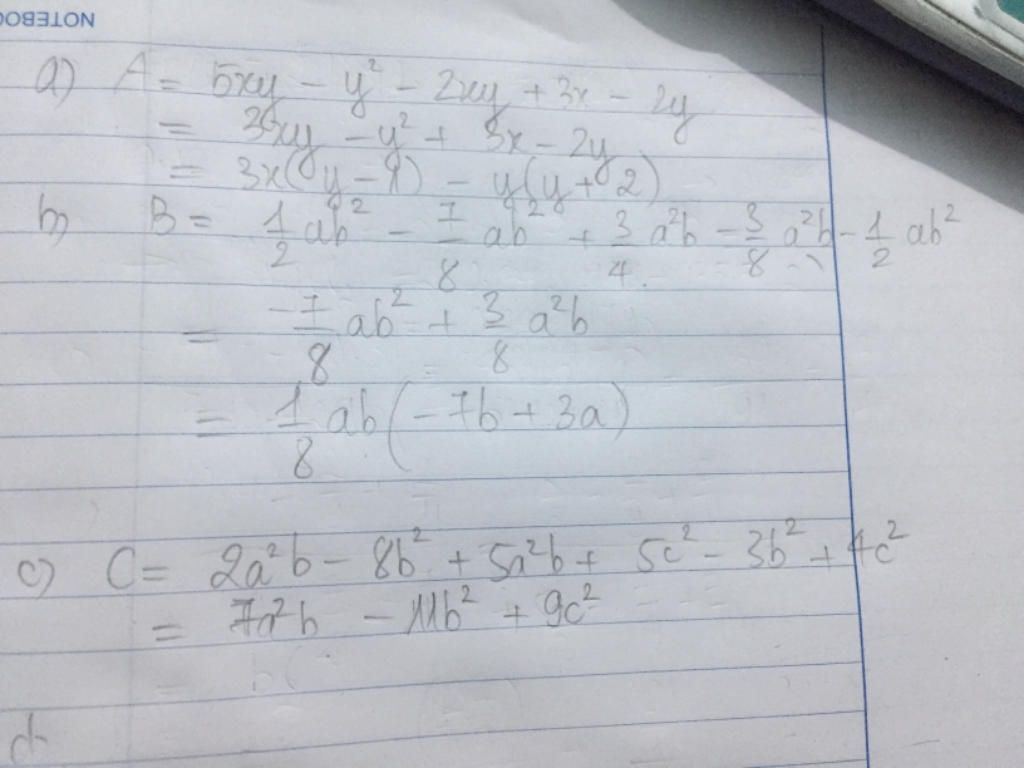 NOTEBOO
a) A = 5xy - y² - 2xy + 3x - 2y
= 3xy - y² + 3x - 2y
= 3x(y - 1) - y(y + 2)
b) B = 1/2 ab² - 7/8 ab² + 3/4 a²b - 3/8 a²b - 1/2 ab²
= -7/8 ab² + 3/8 a²b
= 1/8 ab(-7b + 3a)
c) C = 2a²b - 8b² + 5a²b + 5c² - 3b² + 4c²
= 7a²b - 11b² + 9c²
d